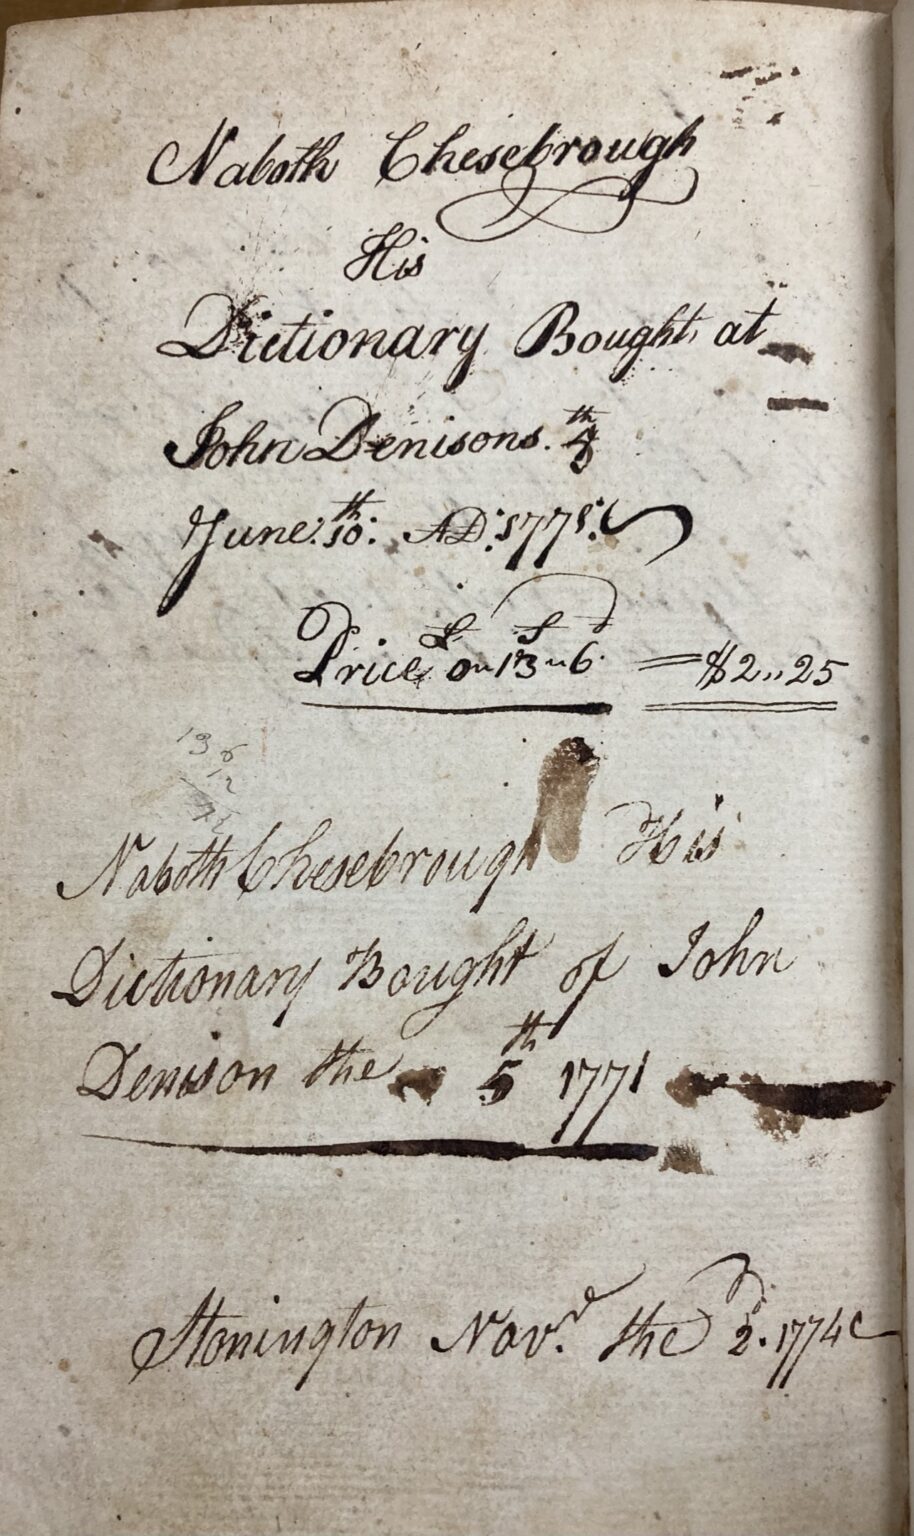 Naboth Chesebrough
His
Dictionary Bought at
John Denisons.
June: 10:th AD: 1771:
Price £ 0 " 13 S " 6 d = $2,,25
13 6
12
Naboth Chesebrough His
Dictionary Bought of John
Denison the 5th 1771
Stonington Nov.r the 2.d 1774